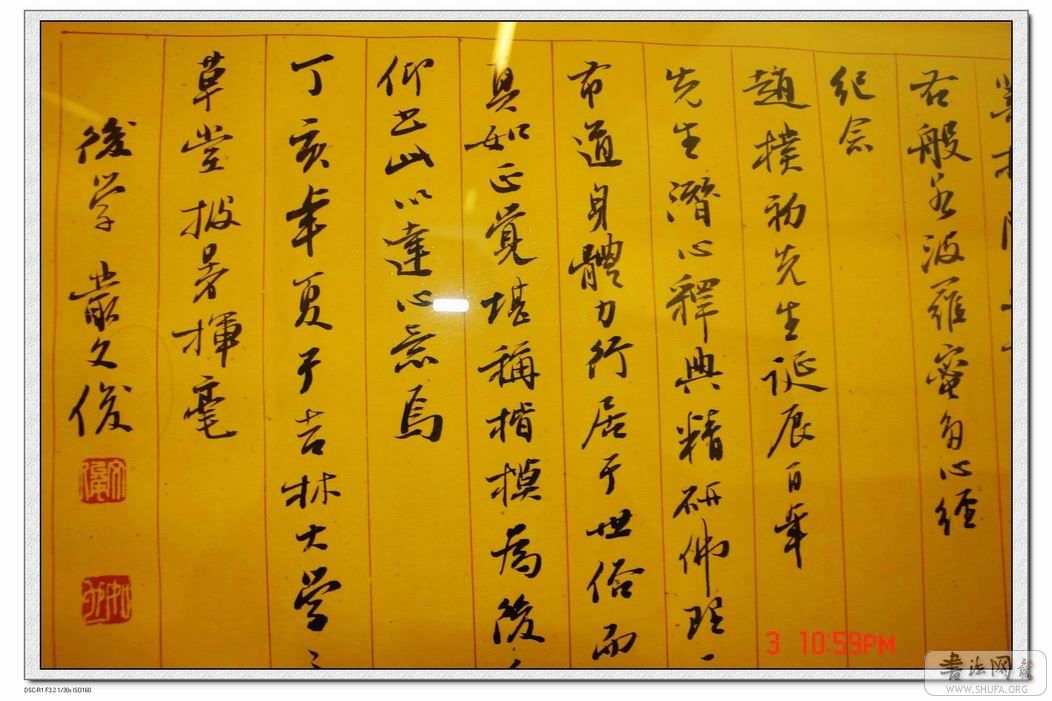 右般若波羅蜜多心經
紀念
趙樸初先生誕辰百年
先生潛心釋典精研佛理
布道身體力行居于世俗而
真如正覺堪稱楷模為後
仰书此以達心意焉
丁亥年夏于吉林大学
草堂披暑揮毫
後学 叢文俊
3 10:59PM
書法网
WWW.SHUFA.ORG
DSC-R1 F3.2 1/30s ISO160